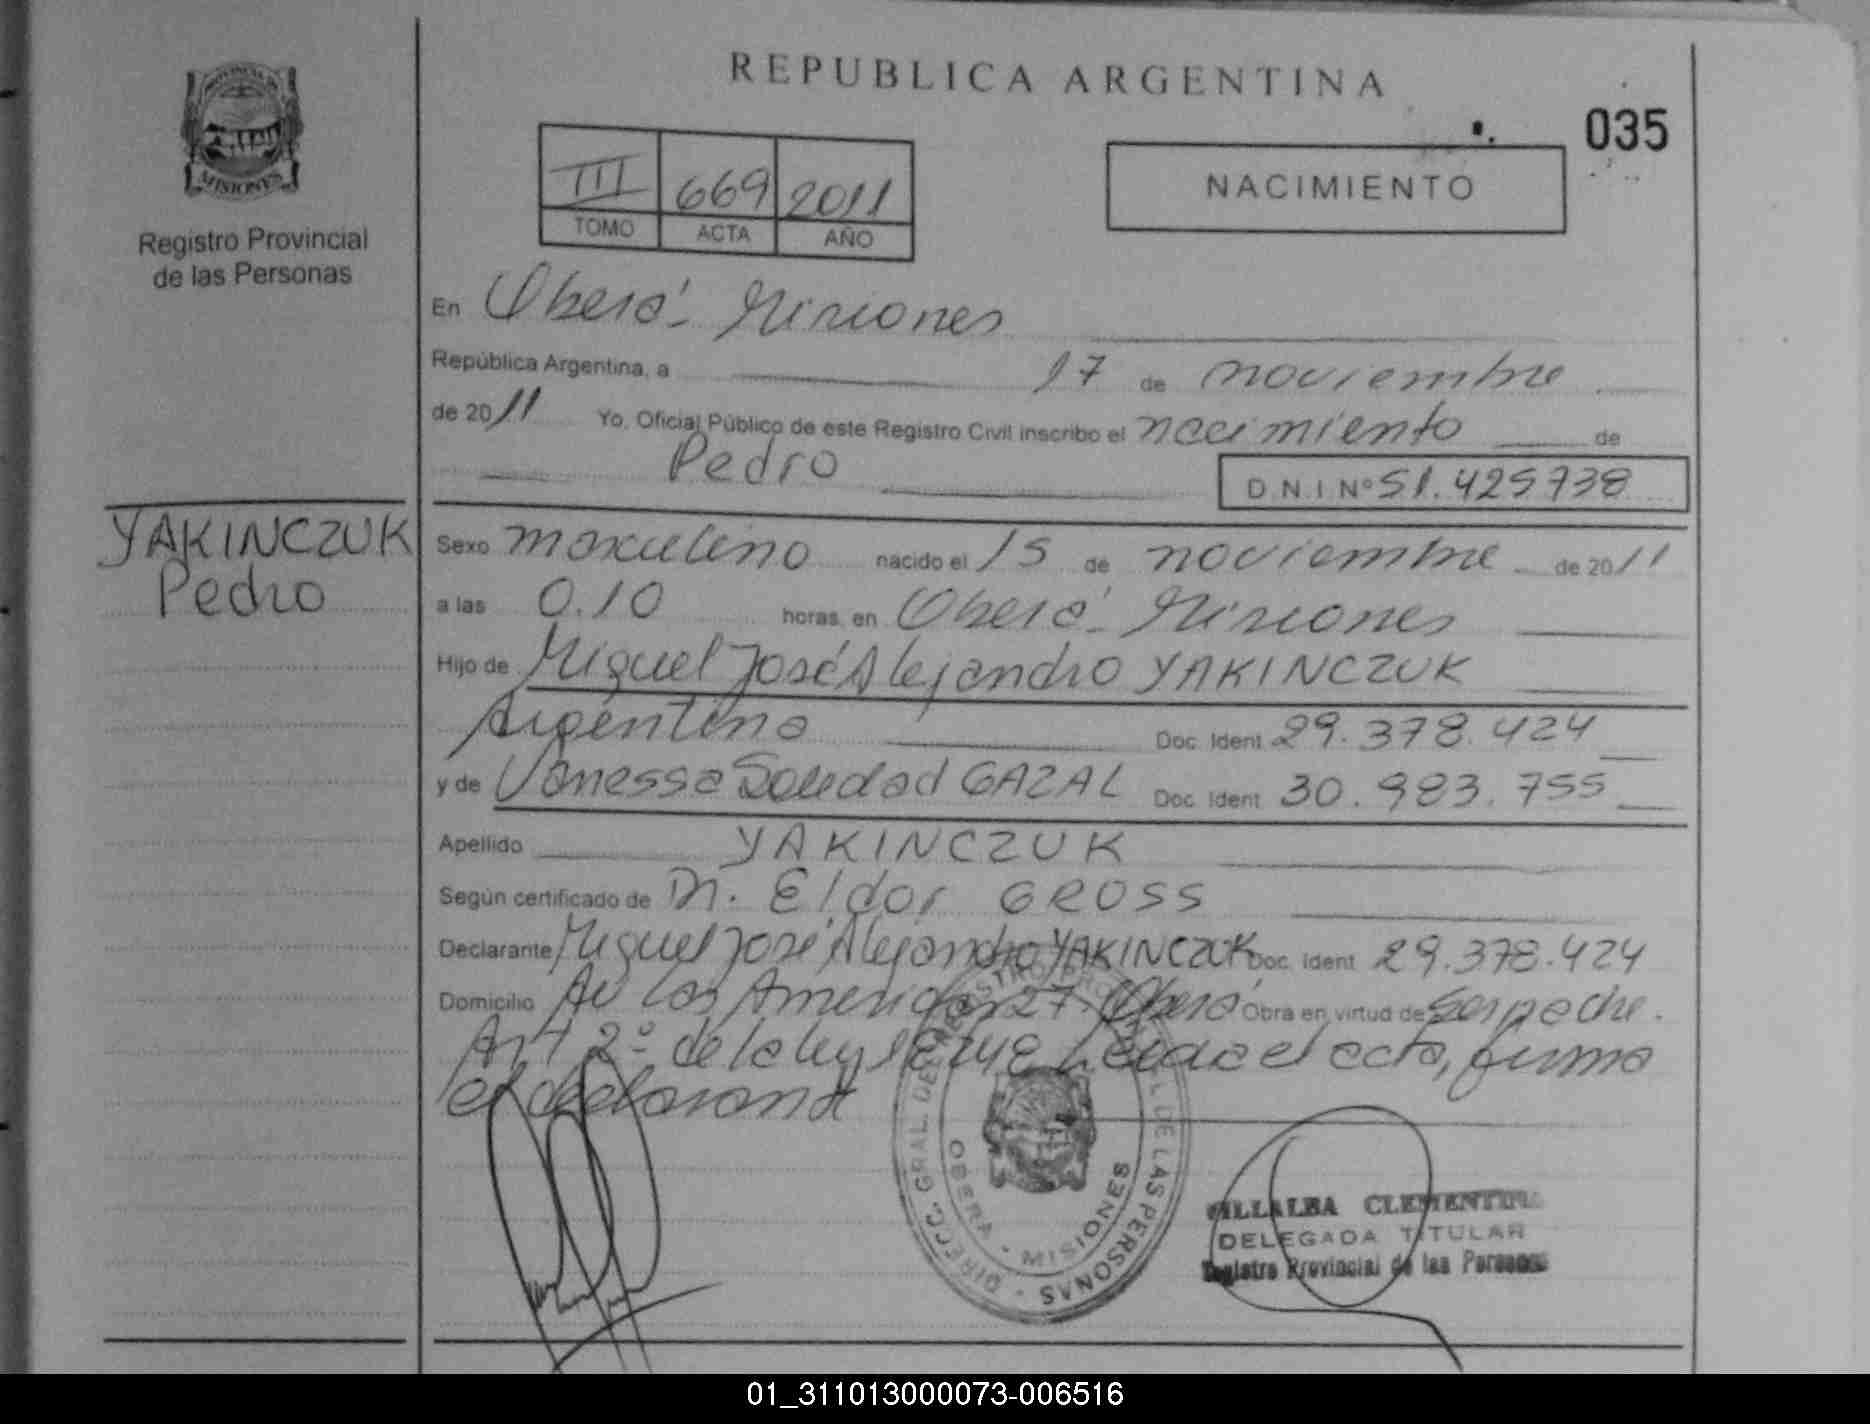 REPUBLICA ARGENTINA
035
PROVINCIA DE
MISIONES
Registro Provincial
de las Personas
III 669 2011
TOMO ACTA AÑO
NACIMIENTO
En Oberá - Misiones
República Argentina, a 17 de noviembre
de 2011 Yo, Oficial Público de este Registro Civil inscribo el nacimiento de
Pedro D.N.I Nº 51.425738
YAKINCZUK
Pedro
Sexo masculino nacido el 15 de noviembre de 2011
a las 0.10 horas, en Oberá - Misiones
Hijo de Miguel José Alejandro YAKINCZUK
Argentina Doc. Ident 29.378.424
y de Vanessa Soledad GAZAL Doc. Ident 30.983.755
Apellido YAKINCZUK
Según certificado de Dr. Eldor GROSS
Declarante Miguel José Alejandro YAKINCZUK Doc. Ident 29.378.424
Domicilio Av Las Americas 27 - Oberá Obra en virtud de
Art 2º de la ley 18248 Leida el acta, firma
el declarante
DIRECC. GRAL. DEL REGISTRO PROVINCIAL DE LAS PERSONAS
OBERA - MISIONES
VILLALBA CLEMENTINA
DELEGADA TITULAR
Registro Provincial de las Personas
01_311013000073-006516